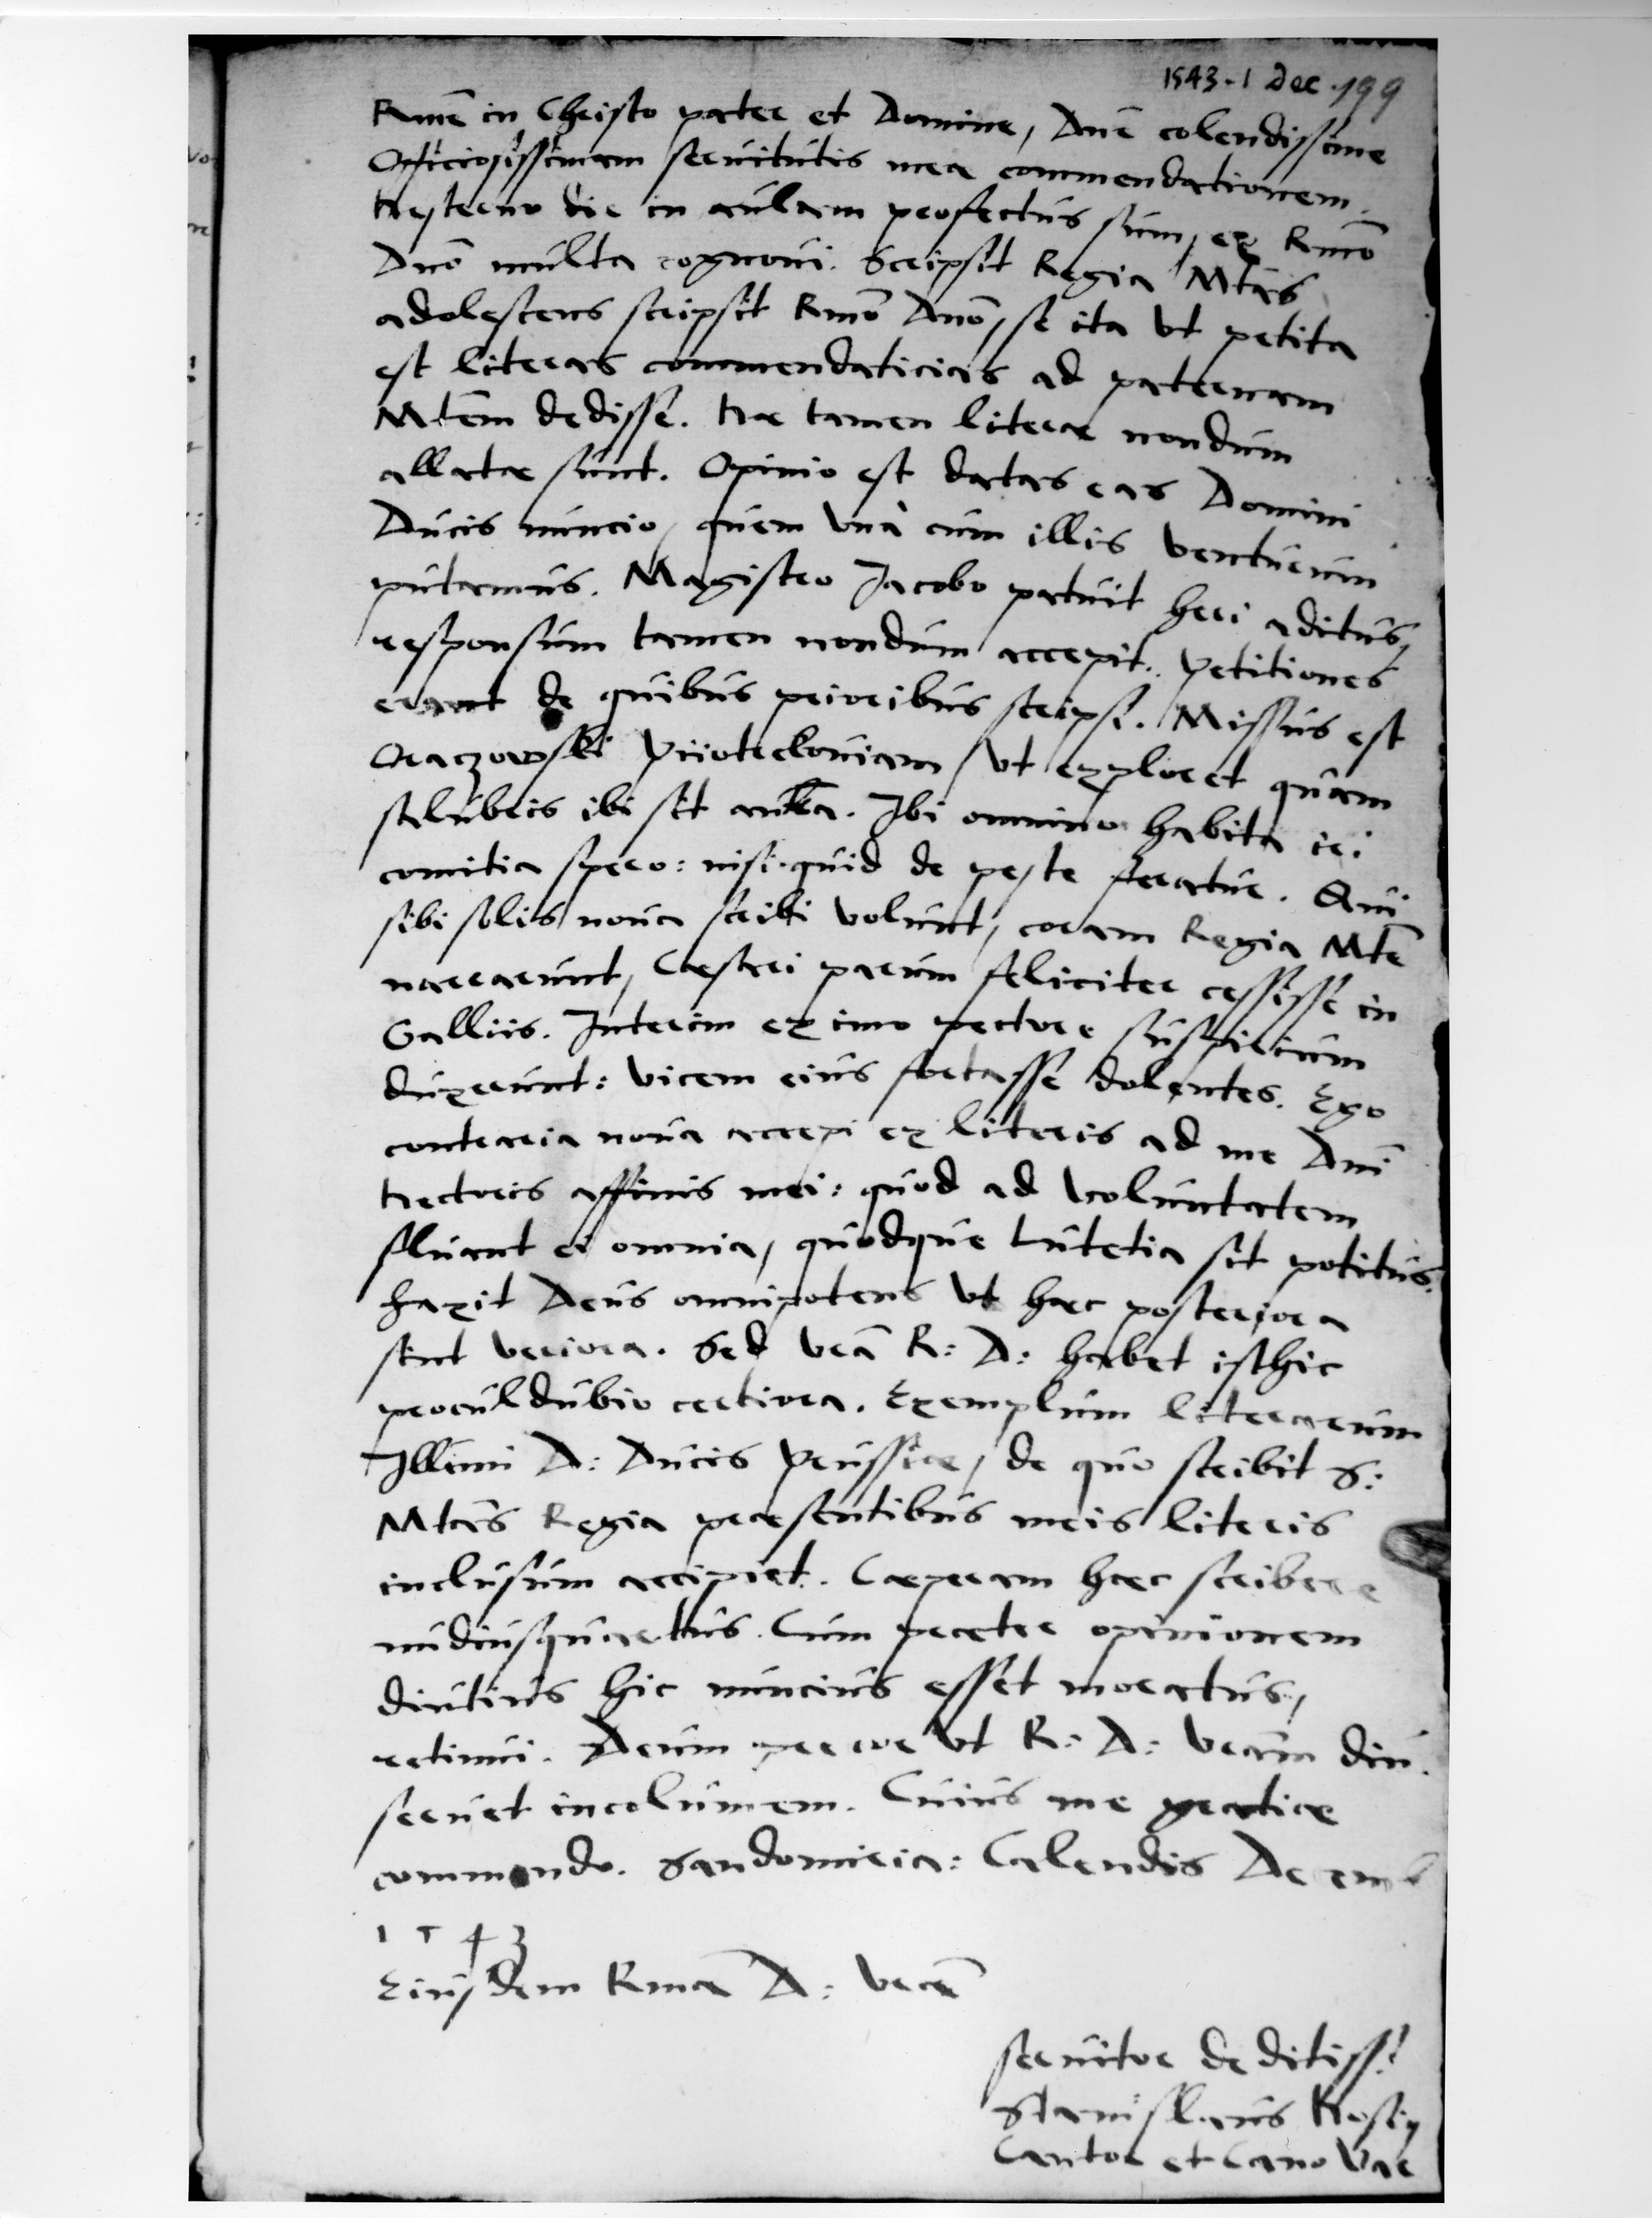 1543 - 1 Dec. 199
Rme in Christo pater et Domine, Dne colendissime
Officiosissimam servitutis mea commendationem.
Hesterno die in aulam profectus sum, ex Rmo
Dno multa cognovi. Scripsit Regia Mtas
adolescens scripsit Rmo Dno, se ita ut petita
est literas commendaticias ad paternam
Mtem dedisse. Hae tamen literae nondum
allatae sunt. Opinio est datas eas Domini
Ducis nuncio, quem una cum illis venturum
putamus. Magistro Jacobo patuit heri aditus,
responsum tamen nondum accepit. Petitiones
erant de quibus prioribus scripsi. Missus est
Oraczowski ut exploret quam
salubris ibi sit aura. Ibi omnino habita iri
comitia spero: nisi quid de peste feratur. Qui
sibi solis nova scribi volunt, coram Regia Mte
narrarunt, Caesari parum feliciter cessisse in
Galliis. Interim ex imo pectore suspirium
duxerunt: vicem eius fortasse dolentes. Ego
contraria nova accepi ex literis ad me Dni
Hectoris affinis mei: quod ad voluntatem
fluant ei omnia, quodque Lutetia sit potitus.
Faxit Deus omnipotens ut haec posteriora
sint veriora. Sed Vra R: D: habet isthic
proculdubio certiora. Exemplum literarum
Illmi D: Ducis Prussiae, de quo scribit S:
Mtas Regia praesentibus meis literis
inclusum accipiet. Caeperam haec scribere
nudiusquartus. Cum praeter opinionem
diutius hic nuncius esset moratus,
retinui. Deum precor ut R: D: Vram diu
servet incolumem. Cuius me gratiae
commendo. Sandomiria: Calendis Decemb
1543
Eiusdem Rmae D: Vrae
servitor deditiss:
Stanislaus Hosius
Cantor et Cano Var